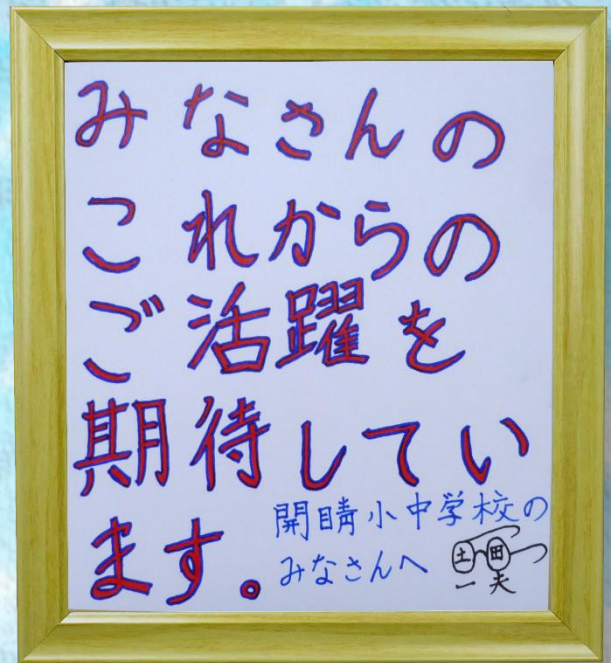 みなさんの
これからの
ご活躍を
期待してい
ます。
開睛小中学校の
みなさんへ
土田
一夫